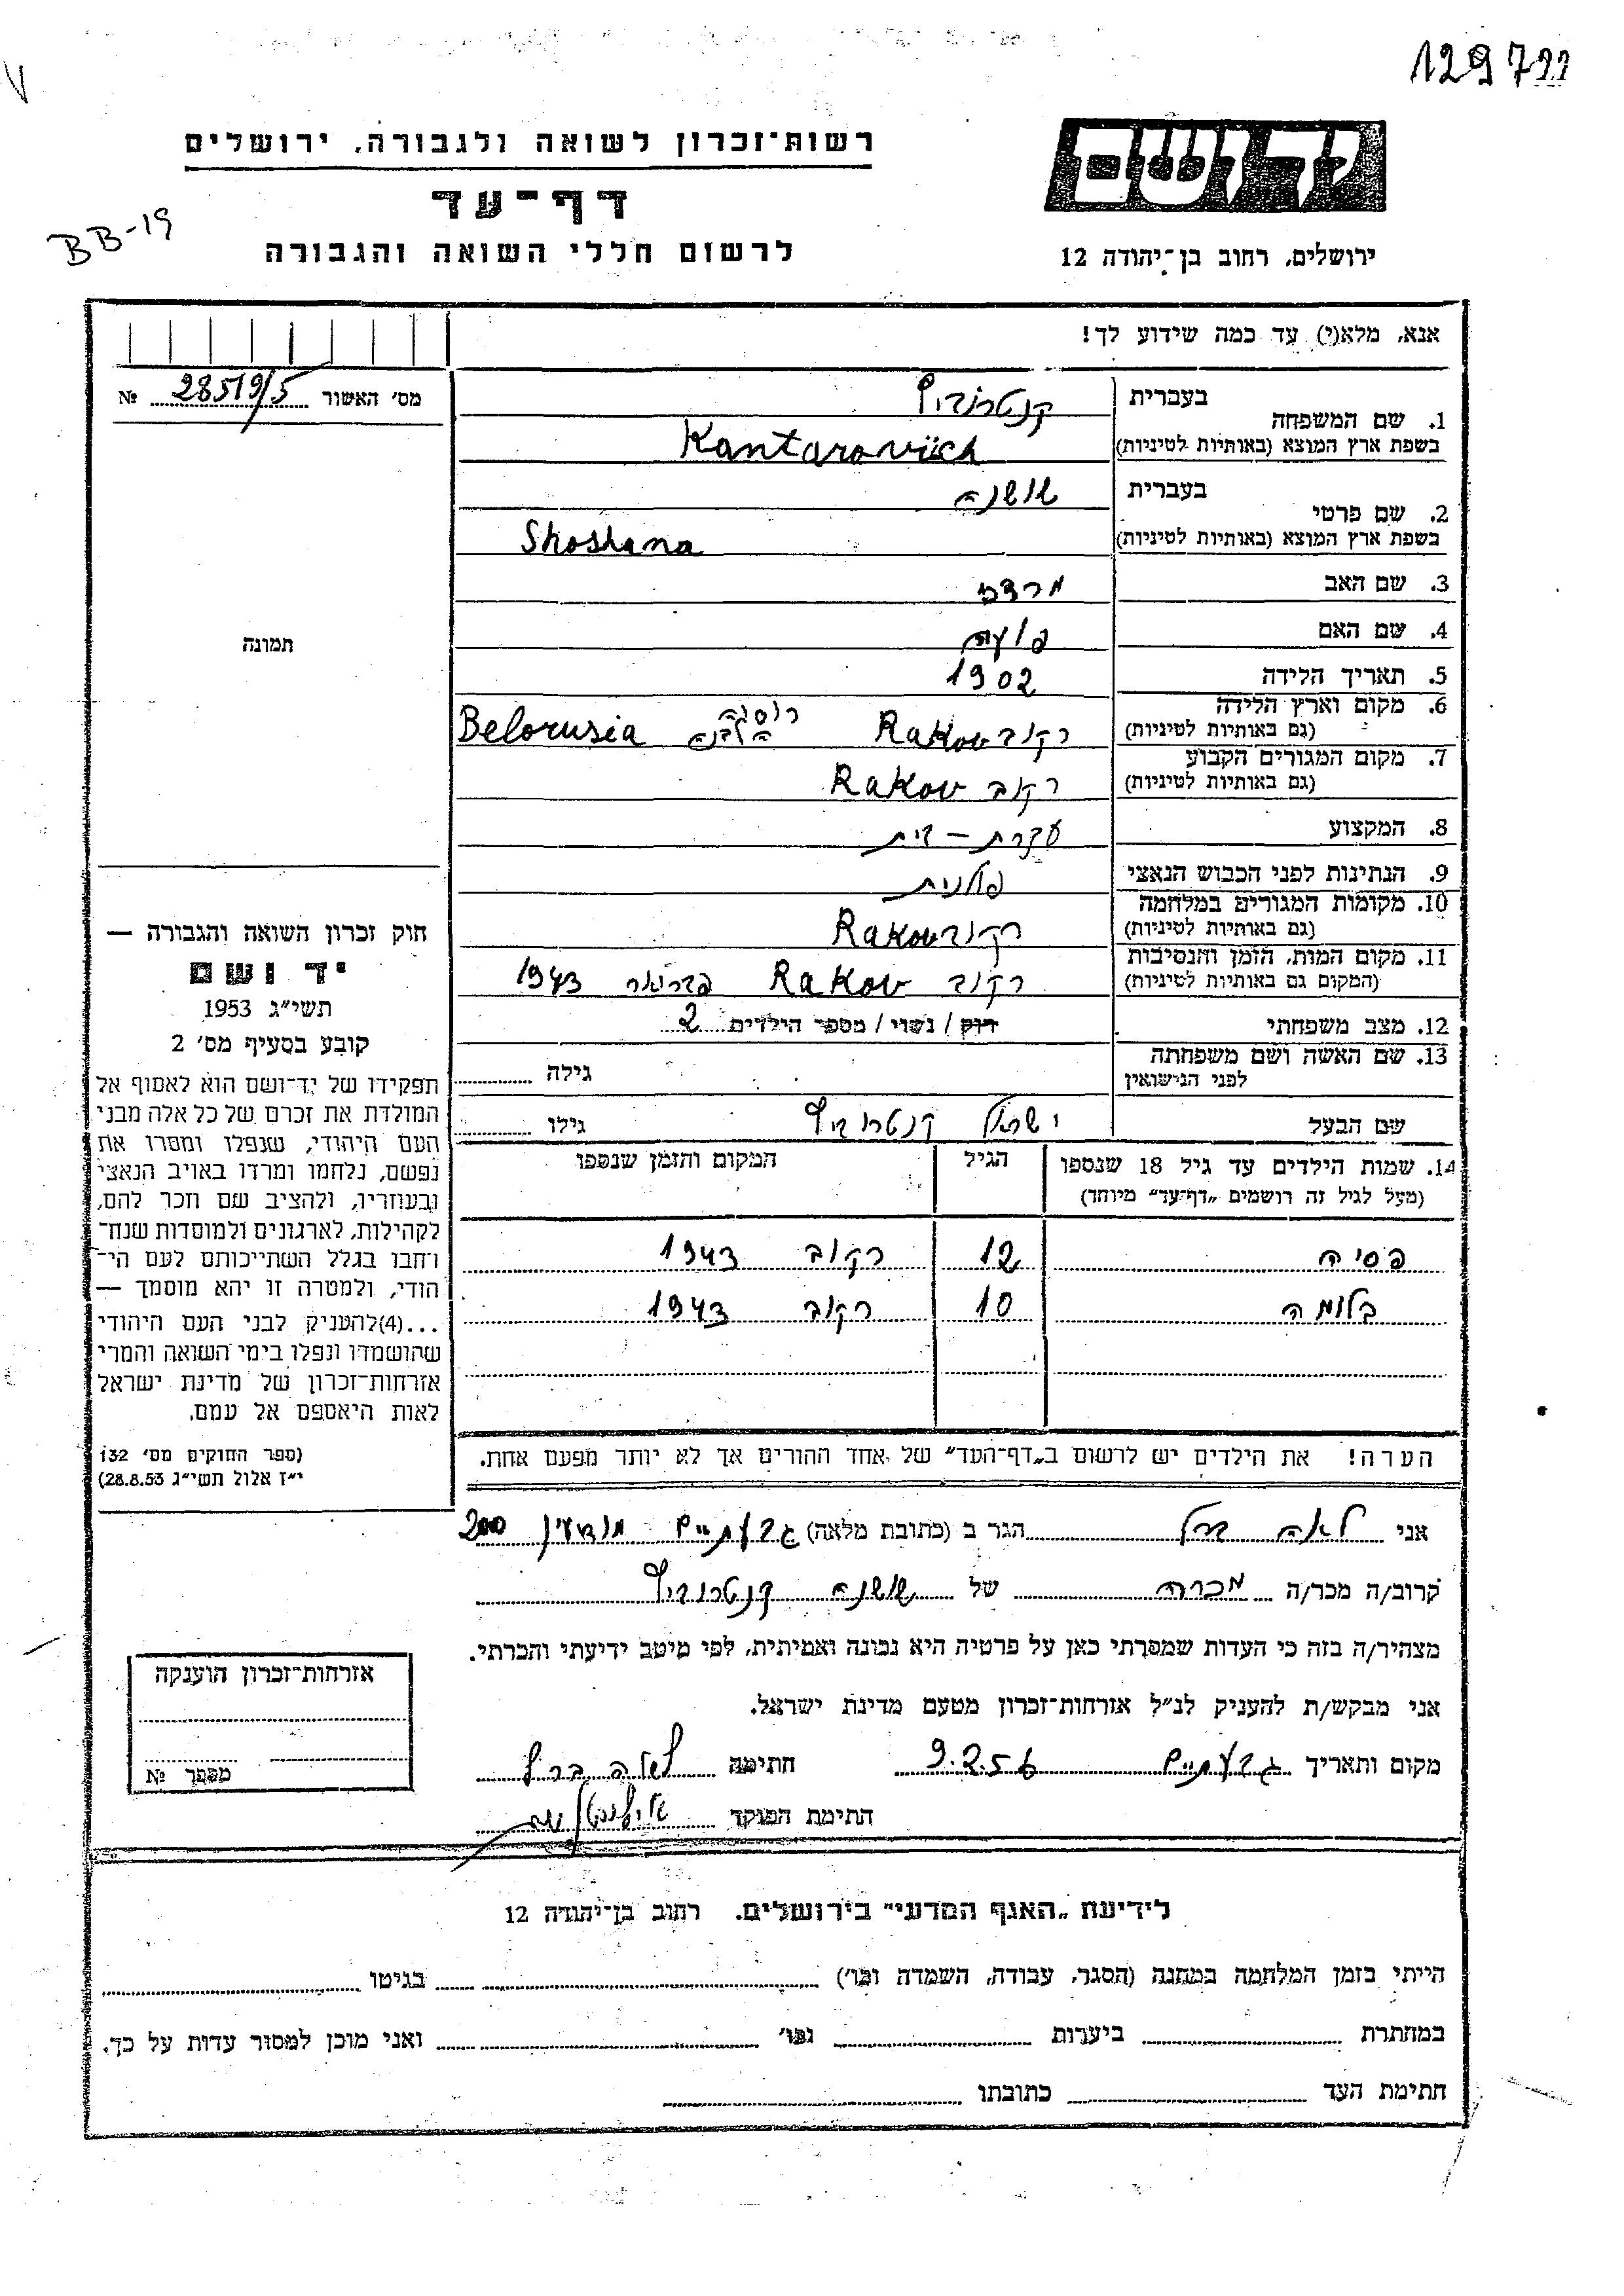 129722
V
רשות־זכרון לשואה ולגבורה, ירושלים
דף־עד
BB-19
לרשום חללי השואה והגבורה
יד ושם
ירושלים, רחוב בן־יהודה 12
אנא, מלא(י) עד כמה שידוע לך!
מס׳ האשור № 28519/5
1. שם המשפחה בעברית קנטרוביץ
בשפת ארץ המוצא (באותיות לטיניות) Kantarovich
2. שם פרטי בעברית שושנה
בשפת ארץ המוצא (באותיות לטיניות) Shoshana
3. שם האב מרדכי
4. שם האם
5. תאריך הלידה 1902
6. מקום וארץ הלידה (גם באותיות לטיניות) רקוב Rakov רוסיה הלבנה Belorusia
7. מקום המגורים הקבוע (גם באותיות לטיניות) רקוב Rakov
8. המקצוע עקרת – בית
9. הנתינות לפני הכבוש הנאצי פולנית
10. מקומות המגורים במלחמה (גם באותיות לטיניות) רקוב Rakov
11. מקום המות, הזמן והנסיבות (המקום גם באותיות לטיניות) רקוב Rakov פברואר 1943
12. מצב משפחתי רוק / נשוי / מספר הילדים 2
13. שם האשה ושם משפחתה לפני הנישואין גילה
שם הבעל ישראל קנטרוביץ גילו
14. שמות הילדים עד גיל 18 שנספו (מעל לגיל זה רושמים „דף־עד״ מיוחד) הגיל המקום והזמן שנספו
פסיה 12 רקוב 1943
בלומה 10 רקוב 1943
הערה! את הילדים יש לרשום ב„דף־העד״ של אחד ההורים אך לא יותר מפעם אחת.
תמונה
חוק זכרון השואה והגבורה —
יד ושם
תשי״ג 1953
קובע בסעיף מס׳ 2
תפקידו של יד־ושם הוא לאסוף אל
המולדת את זכרם של כל אלה מבני
העם היהודי, שנפלו ומסרו את
נפשם, נלחמו ומרדו באויב הנאצי
ובעוזריו, ולהציב שם וזכר להם,
לקהילות, לארגונים ולמוסדות שנח־
רבו בגלל השתייכותם לעם הי־
הודי, ולמטרה זו יהא מוסמך —
...(4)להעניק לבני העם היהודי
שהושמדו ונפלו בימי השואה והמרי
אזרחות־זכרון של מדינת ישראל
לאות היאספם אל עמם.
(ספר החוקים מס׳ 132
י״ז אלול תשי״ג 28.8.53)
אני לאה ברל הגר ב (כתובת מלאה) גבעתיים מודיעין 200
קרוב/ה מכר/ה מכרה של שושנה קנטרוביץ
מצהיר/ה בזה כי העדות שמסרתי כאן על פרטיה היא נכונה ואמיתית, לפי מיטב ידיעתי והכרתי.
אני מבקש/ת להעניק לנ״ל אזרחות־זכרון מטעם מדינת ישראל.
מקום ותאריך גבעתיים 9.2.56 חתימה לאה ברל
חתימת הפוקד
אזרחות־זכרון הוענקה
מספר №
לידיעת „האגף המדעי״ בירושלים. רחוב בן־יהודה 12
הייתי בזמן המלחמה במחנה (הסגר, עבודה, השמדה וכו׳) בגיטו
במחתרת ביערות וכו׳ ואני מוכן למסור עדות על כך.
חתימת העד כתובתו